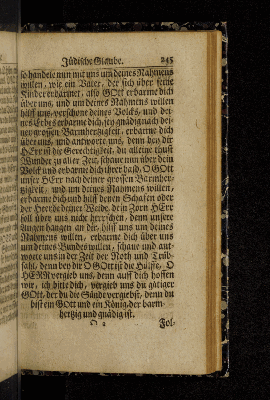 Jüdische Glaube. 245
so handele nun mit uns um deines Nahmens
willen, wie ein Vater, der sich über seine
Kinder erbarmet, also GOtt erbarme dich
über uns, und um deines Nahmens willen
hilff uns, verschone deines Volcks, und dei-
nes Erbes erbarme dich, sey gnädig nach dei-
ner grossen Barmhertzigkeit, erbarme dich
über uns, und antworte uns, denn bey dir
HErr ist die Gerechtigkeit, du alleine thust
Wunder zu aller Zeit, schaue nun über dein
Volck und erbarme dich ihr bald, O GOtt
unser HErr nach deiner grossen Barmher-
tzigkeit, und um deines Nahmens willen,
erbarme dich und hilff denen Schafen oder
der Heerde deiner Weide, dein Zorn HErr
soll über uns nicht herrschen, denn unsere
Augen hangen an dir, hilff uns um deines
Nahmens willen, erbarme dich über uns
um deines Bundes willen, schaue und ant-
worte uns in der Zeit der Noth und Trüb-
sahl, denn bey dir O GOtt ist die Hülffe, O
HERR vergieb uns, denn auff dich hoffen
wir, ich bitte dich, vergieb uns du gütiger
GOtt, der du die Sünde vergiebst, denn du
bist ein GOtt und ein König der barm-
hertzig und gnädig ist.
Fol-